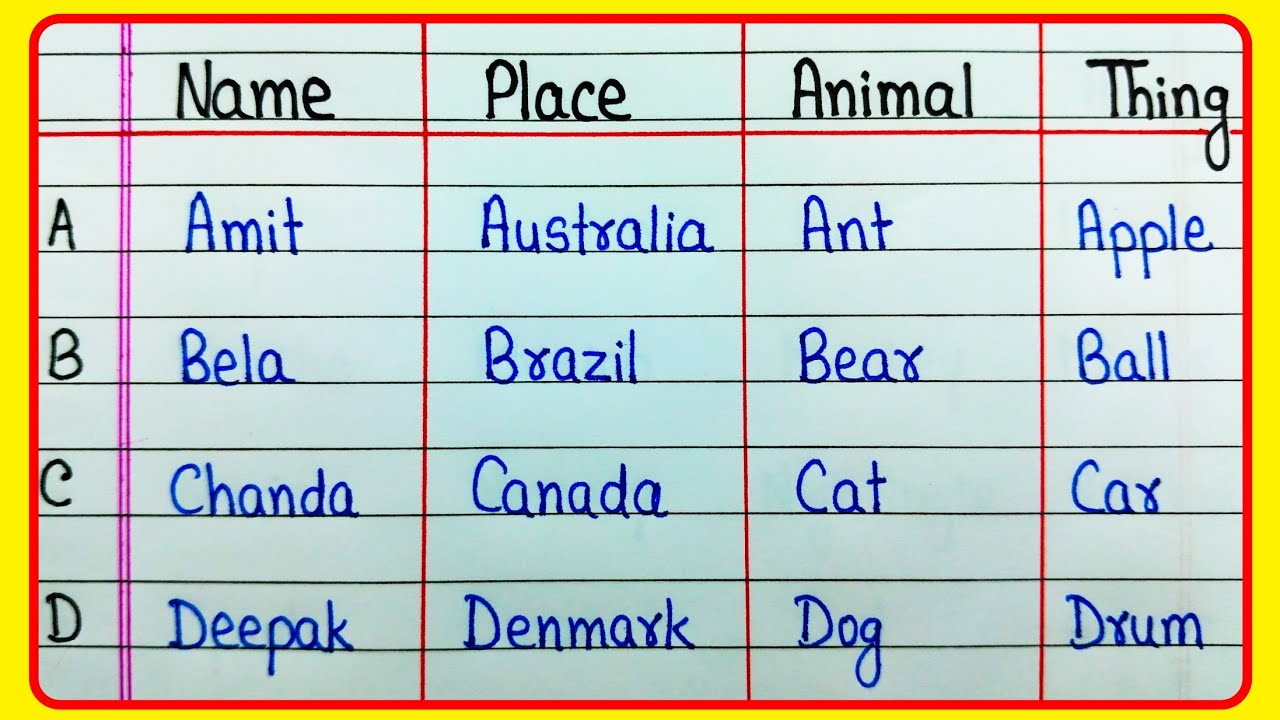 Name Place Animal Thing
A Amit Australia Ant Apple
B Bela Brazil Bear Ball
C Chanda Canada Cat Car
D Deepak Denmark Dog Drum